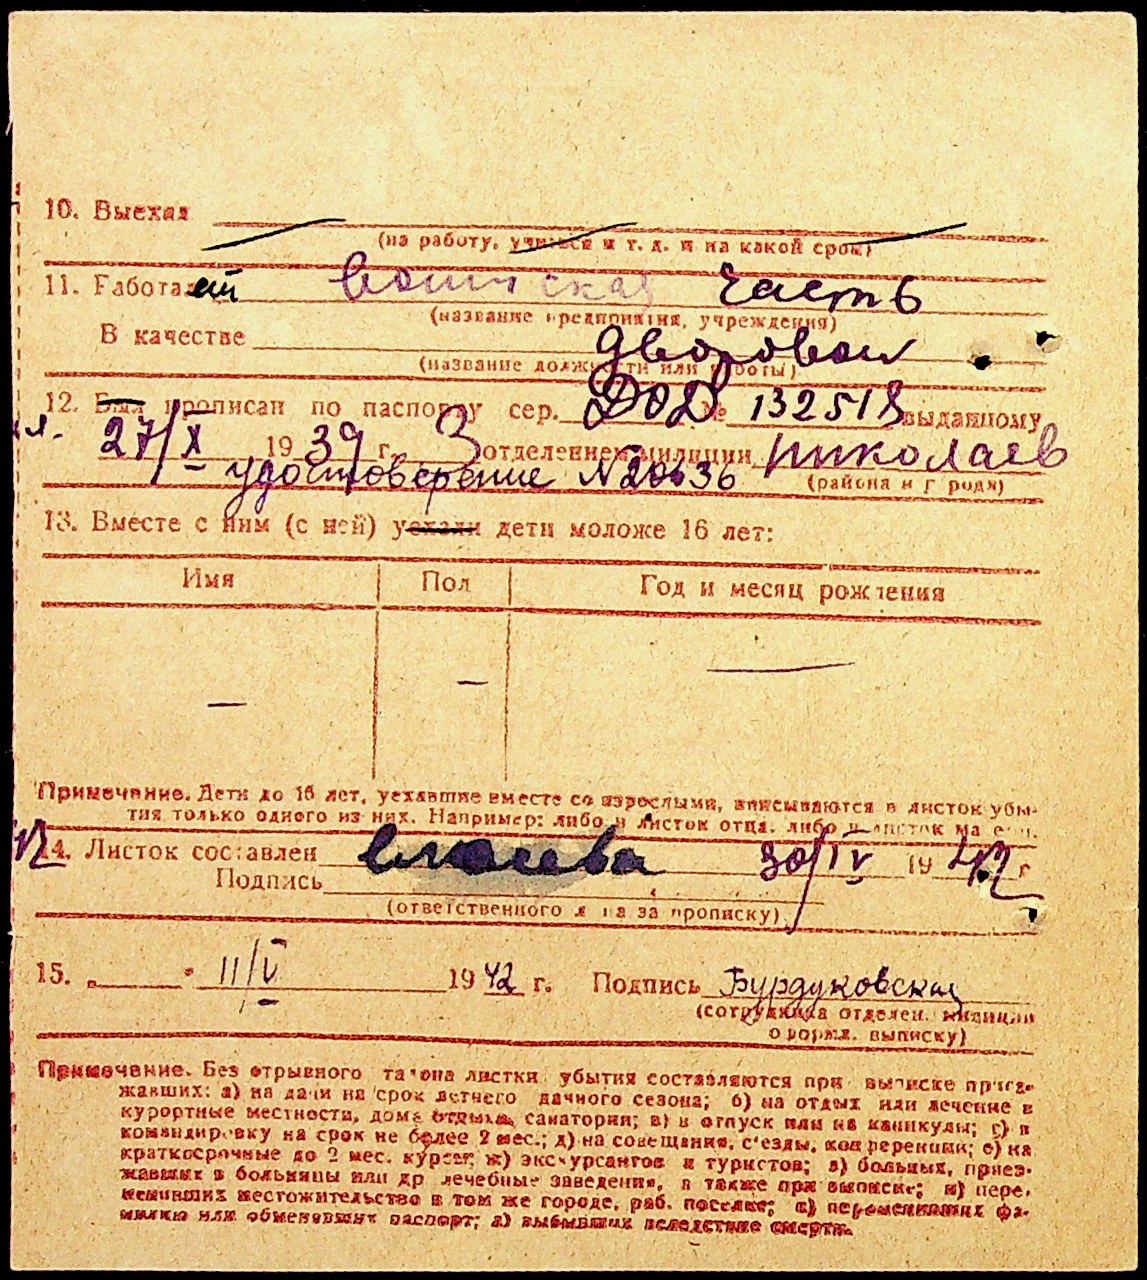 10. Выехал
(на работу, учиться и т. д. и на какой срок)
11. Работает воинская часть
(название предприятия, учреждения)
В качестве
(название должности или работы)
12. Был прописан по паспорту сер. № 132518 выданному
27/X 1939 г. 3 отделением милиции Николаев
удостоверение №
(района и города)
13. Вместе с ним (с ней) уехали дети моложе 16 лет:
Имя Пол Год и месяц рождения
— — —
Примечание. Дети до 16 лет, уехавшие вместе со взрослыми, вписываются в листок убы-
тия только одного из них. Например: либо в листок отца, либо в листок матери.
14. Листок составлен 30/IV 1942 г
Подпись
(ответственного лица за прописку)
15. " 11/V 1942 г. Подпись Бурдуковская
(сотрудника отделен. милиции
оформл. выписку)
Примечание. Без отрывного талона листки убытия составляются при выписке приез-
жавших: а) на дачи на срок летнего дачного сезона; б) на отдых или лечение в
курортные местности, дома отдыха, санатории; в) в отпуск или на каникулы; г) в
командировку на срок не более 2 мес.; д) на совещания, с'езды, конференции; е) на
краткосрочные до 2 мес. курсы; ж) экскурсантов и туристов; з) больных, приез-
жавших в больницы или др лечебные заведения, а также при выписке; и) пере-
менивших местожительство в том же городе, раб. поселке; к) переменивших фа-
милию или обменявших паспорт; л) выбывших вследствие смерти.